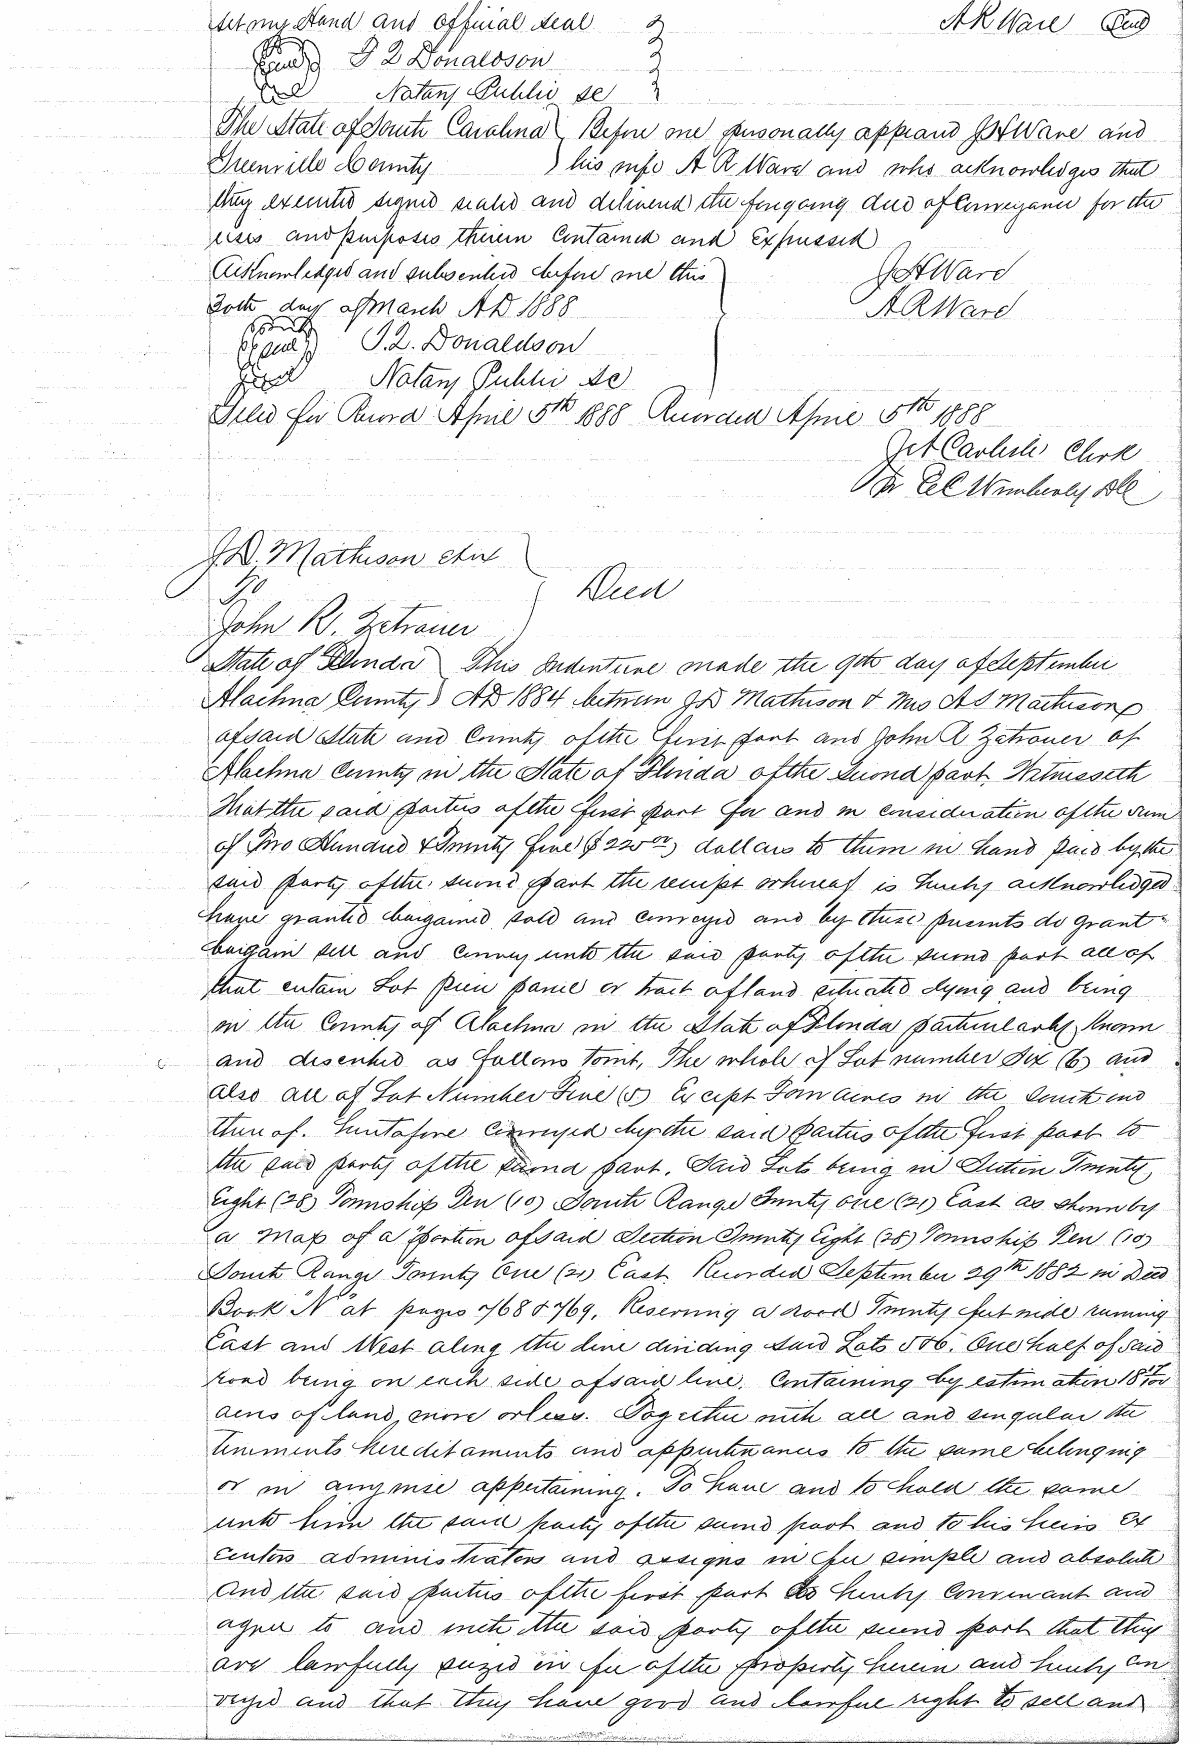 set my Hand and official seal A R Ware Seal
T Q Donaldson
Notary Public SC
The State of South Carolina Before me personally appeard J H Ware and
Greenville County his wife A R Ward and who acknowledges that
they executed signed sealed and delivered the foregoing deed of Conveyance for the
uses and purposes therein Contained and Expressed
Acknowledged and subscribed before me this J H Ward
30th day of March AD 1888 A R Ward
T. Q. Donaldson
Notary Public SC
Filed for Record April 5th 1888 Recorded April 5th 1888
Carlisle Clerk
Wimberly DC
J. D. Matheson et ux
To Deed
John R. Zetrouer
State of Florida This Indenture made the 9th day of September
Alachua County AD 1884 between J D Matheson & Mrs A S Matheson
of said State and County of the first part and John R Zetrouer of
Alachua County in the State of Florida of the second part. Witnesseth
That the said parties of the first part for and in consideration of the sum
of Two Hundred & Twenty five ($225 00) dollars to them in hand paid by the
said party of the second part the receipt whereof is hereby acknowledged
have granted bargained sold and conveyed and by these presents do grant
bargain sell and convey unto the said party of the second part all of
that certain Lot piece parcel or tract of land situated lying and being
in the County of Alachua in the State of Florida particularly known
and described as follows towit, The whole of Lot number Six (6) and
also all of Lot Number Five (5) Except Four acres in the South end
thereof. heretofore conveyed by the said parties of the first part to
the said party of the second part. Said Lots being in Section Twenty
Eight (28) Township Ten (10) South Range Twenty one (21) East as shown by
a map of a portion of said Section Twenty Eight (28) Township Ten (10)
South Range Twenty One (21) East. Recorded September 29th 1882 in Deed
Book "N" at pages 768 & 769. Reserving a road Twenty feet wide running
East and West along the line dividing said Lots 5 & 6. One half of said
road being on each side of said line. Containing by estimation 18
acres of land, more or less. Together with all and singular the
tenements hereditaments and appurtenances to the same belonging
or in anywise appertaining. To have and to hold the same
unto him the said party of the second part and to his heirs Ex
ecutors administrators and assigns in fee simple and absolute
And the said parties of the first part do hereby Convenant and
agree to and with the said party of the second part that they
are lawfully seized in fee of the property herein and hereby con
veyed and that they have good and lawful right to sell and